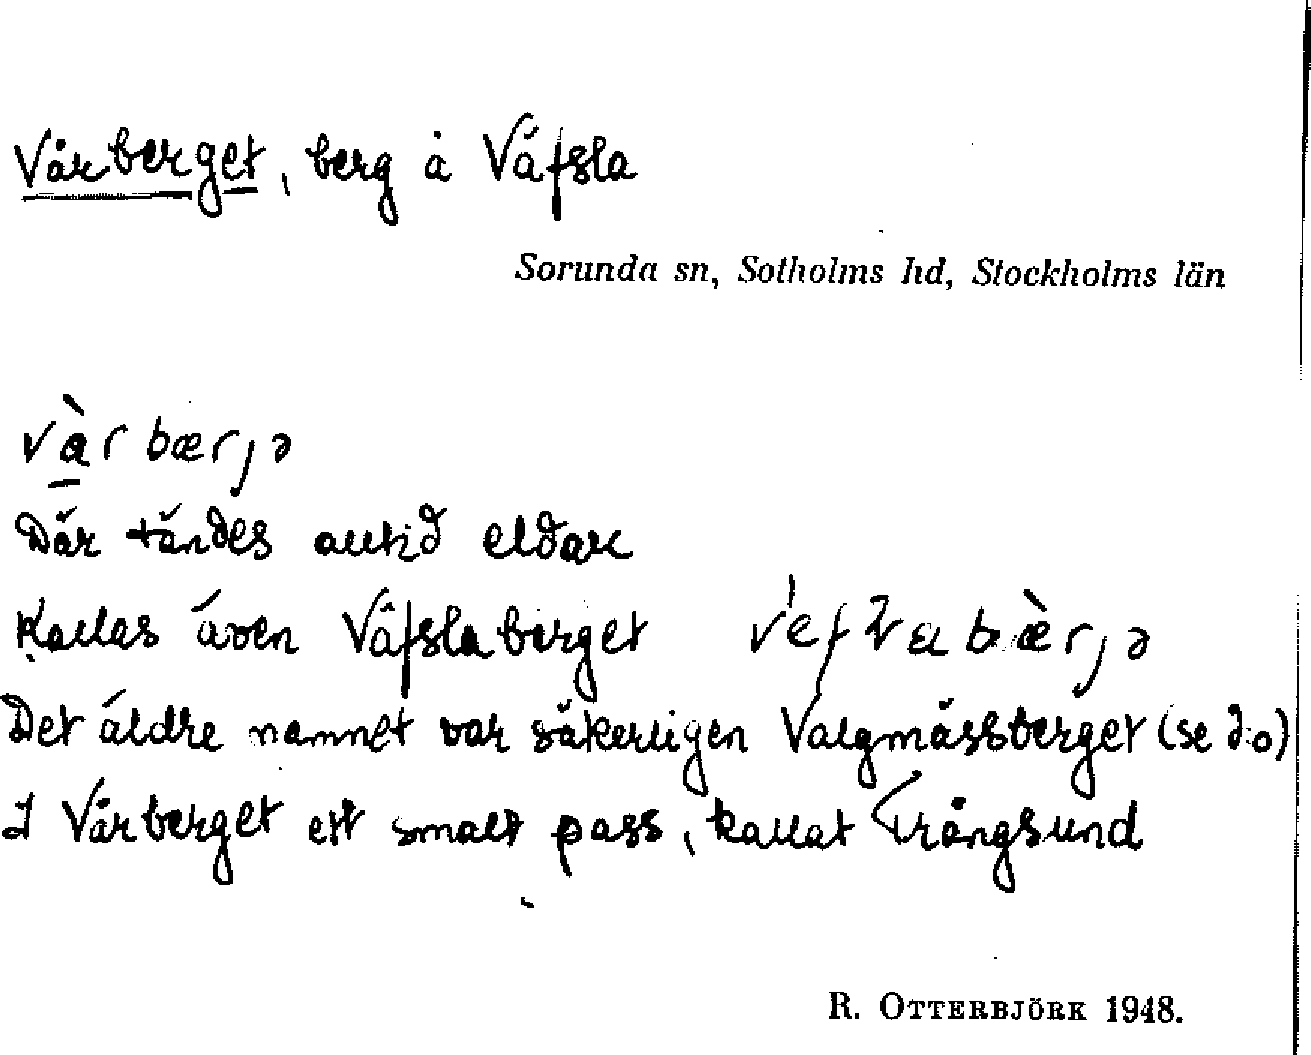 Vårberget, berg å Väfsla
Sorunda sn, Sotholms hd, Stockholms län
Där tändes alltid eldar
Kallas även Väfslaberget
Det äldre namnet var säkerligen Valgmässberget (se d:o)
I Vårberget ett smalt pass, kallat Trångsund
R. OTTERBJÖRK 1948.